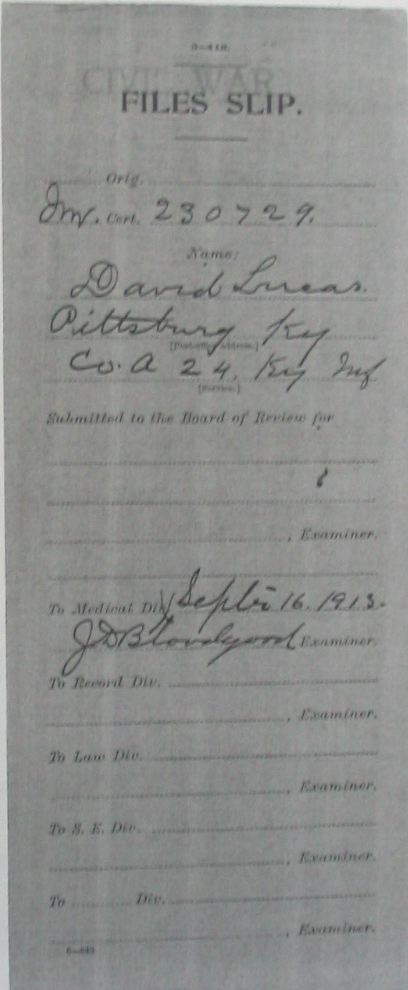 3—416.
CIVIL WAR
FILES SLIP.
Orig.
Inv. Cert. 230729.
Name:
David Lucas.
Pittsburg Ky
Co. A 24, Ky Inf
[Service.]
Submitted to the Board of Review for
, Examiner.
To Medical Div. 16. 1913.
Examiner.
To Record Div.
, Examiner.
To Law Div.
, Examiner.
To S. E. Div.
, Examiner.
To Div.
, Examiner.